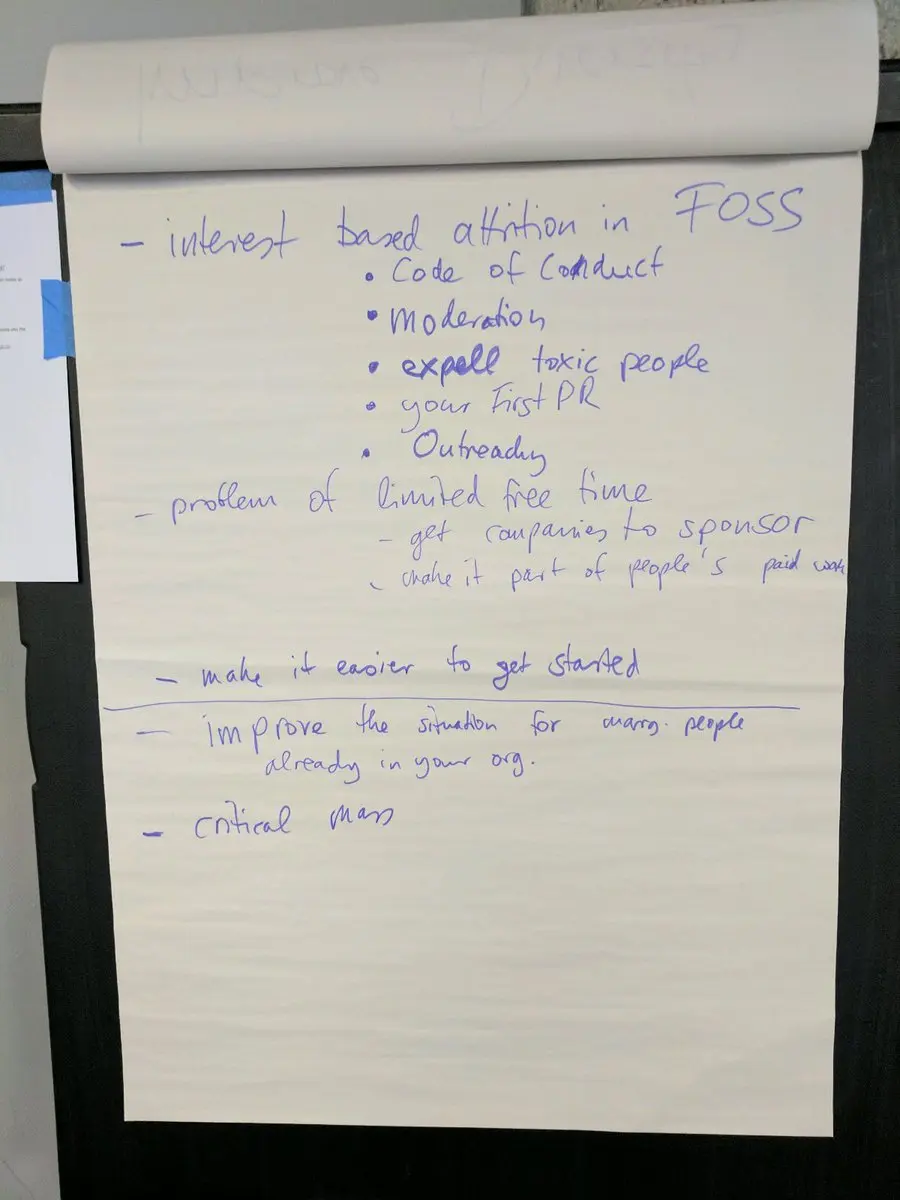 - interest based attrition in FOSS
• Code of Conduct
• moderation
• expell toxic people
• your First PR
• Outreachy
- problem of limited free time
- get companies to sponsor
- make it part of people's paid work
- make it easier to get started
- improve the situation for marg. people
already in your org.
- critical mass